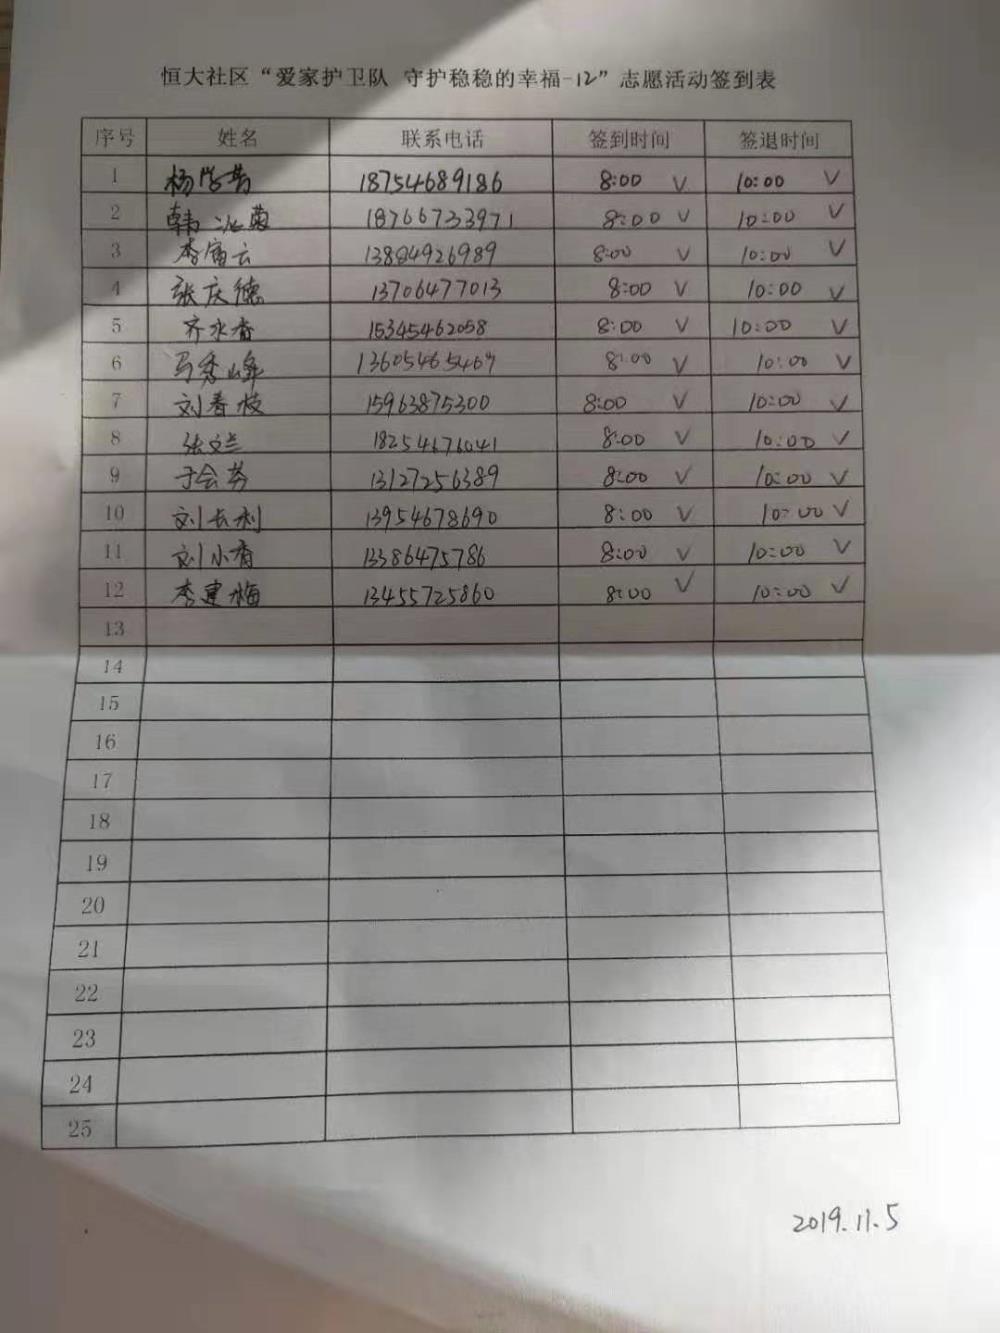 恒大社区“爱家护卫队 守护稳稳的幸福-12”志愿活动签到表
序号 姓名 联系电话 签到时间 签退时间
1 杨学芳 18754689186 8:00 √ 10:00 √
2 韩冰菊 18766733971 8:00 √ 10:00 √
3 李富云 13884926989 8:00 √ 10:00 √
4 张庆德 13706477013 8:00 √ 10:00 √
5 齐水香 15345462058 8:00 √ 10:00 √
6 马秀峰 13605465467 8:00 √ 10:00 √
7 刘春枝 15963875300 8:00 √ 10:00 √
8 张文兰 18254676041 8:00 √ 10:00 √
9 于会芬 13127256389 8:00 √ 10:00 √
10 刘长利 13954678690 8:00 √ 10:00 √
11 刘小香 13386475786 8:00 √ 10:00 √
12 李建梅 13455725860 8:00 √ 10:00 √
13
14
15
16
17
18
19
20
21
22
23
24
25
2019.11.5